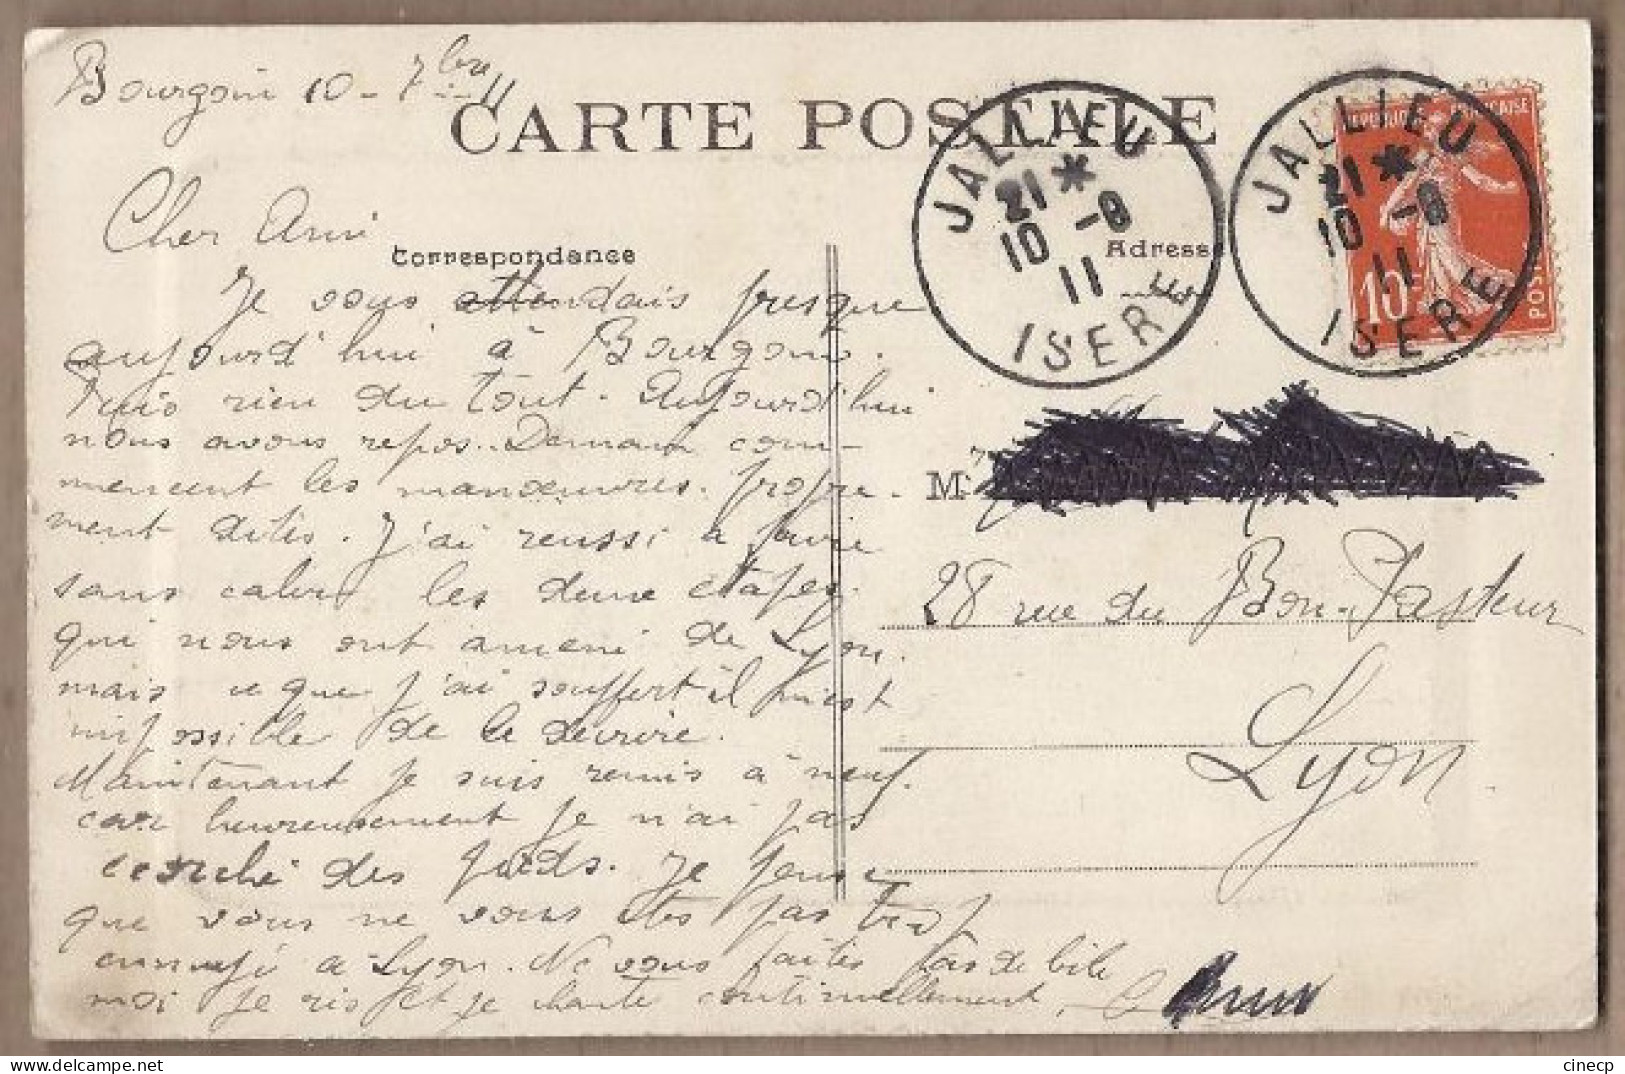 Bourgoin 10 - 7bre 11
CARTE POSTALE
JALLIEU
21 *
10 -9
11
ISERE
JALLIEU
21 *
10 -9
11
ISERE
REPUBLIQUE FRANÇAISE
10c
POSTES
Cher Ami
Correspondance
Adresse
Je vous attendais presque
aujourd'hui à Bourgoin.
Puis rien du tout. Aujourd'hui
nous avons repos.. Demain com-
mencent les manœuvres. propre-
ment dites. J'ai reussi à faire
sans caler les deux etapes
qui nous ont amené de Lyon.
mais ce que j'ai souffert il m'est
impossible de le decrire.
Maintenant je suis remis à neuf.
car heureusement je n'ai pas
ecorché des pieds. Je pense
que vous ne vous etes pas trop
ennuyé à Lyon. Ne vous faites pas de bile
moi je ris et je chante continuellement
M
28 rue du Bon-Pasteur
Lyon.
cinecp